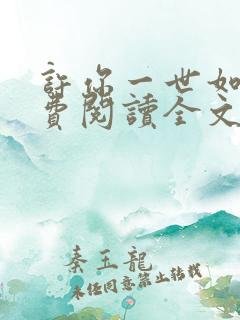 許你一世如
費閱讀全文
秦玉龍
未經同意禁止轉載